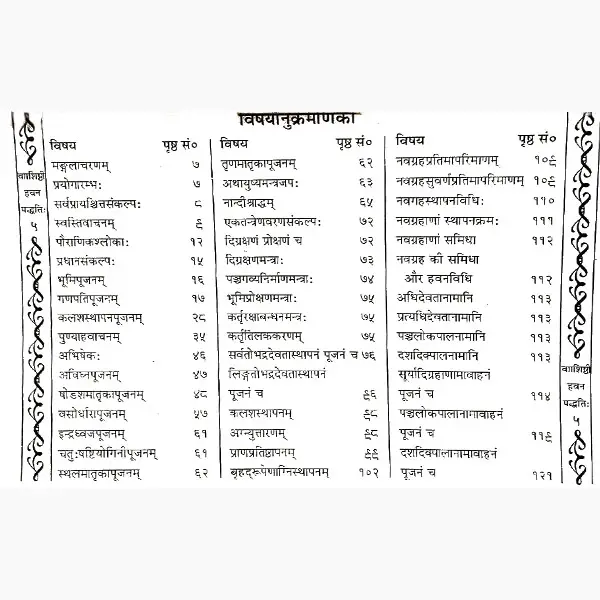 विषयानुक्रमणिका
वाशिष्टी
हवन
पद्धतिः
५
विषय पृष्ठ सं०
मङ्गलाचरणम् ७
प्रयोगारम्भः ७
सर्वप्रायश्चित्तसंकल्पः ८
स्वस्तिवाचनम् ९
पौराणिकश्लोकाः १२
प्रधानसंकल्पः १५
भूमिपूजनम् १६
गणपतिपूजनम् १७
कलशस्थापनपूजनम् २८
पुण्याहवाचनम् ३५
अभिषेकः ४६
अविघ्नपूजनम् ४७
षोडशमातृकापूजनम् ४८
वसोर्धारापूजनम् ५७
इन्द्रध्वजपूजनम् ६१
चतुःषष्टियोगिनीपूजनम् ६१
स्थलमातृकापूजनम् ६२
विषय पृष्ठ सं०
तृणमातृकापूजनम् ६२
अथायुष्यमन्त्रजपः ६३
नान्दीश्राद्धम् ६५
एकतन्त्रेणवरणसंकल्पः ७२
दिग्रक्षणं प्रोक्षणं च ७२
दिग्रक्षणमन्त्राः ७३
पञ्चगव्यनिर्माणमन्त्राः ७४
भूमिप्रोक्षणमन्त्राः ७५
कर्तृरक्षाबन्धनमन्त्रः ७५
कर्तृतिलककरणम् ७५
सर्वतोभद्रदेवतास्थापनं पूजनं च ७६
लिङ्गतोभद्रदेवतास्थापनं
पूजनं च ९६
कलशस्थापनम् ९८
अग्न्युत्तारणम् ९८
प्राणप्रतिष्ठापनम् ९९
बृहद्रूपेणाग्निस्थापनम् १०२
विषय पृष्ठ सं०
नवग्रहप्रतिमापरिमाणम् १०९
नवग्रहसुवर्णप्रतिमापरिमाणम् १०९
नवगहस्थापनविधिः ११०
नवग्रहाणां स्थापनक्रमः १११
नवग्रहाणां समिधा ११२
नवग्रह की समिधा
और हवनविधि ११२
अधिदेवतानामानि ११३
प्रत्यधिदेवतानामानि ११३
पञ्चलोकपालनामानि ११३
दशदिक्पालनामानि ११३
सूर्यादिग्रहाणामावाहनं
पूजनं च ११४
पञ्चलोकपालानामावाहनं
पूजनं च ११९
दशदिक्पालानामावाहनं
पूजनं च १२१
वाशिष्टी
हवन
पद्धतिः
५